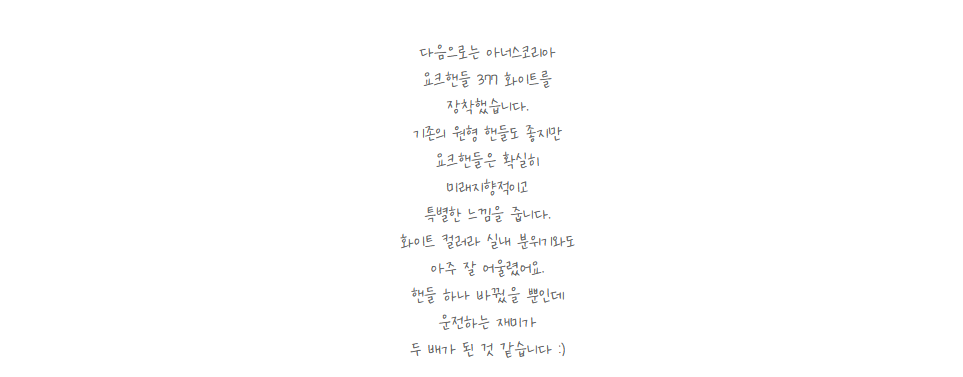 다음으로는 아너스코리아
요크핸들 377 화이트를
장착했습니다.
기존의 원형 핸들도 좋지만
요크핸들은 확실히
미래지향적이고
특별한 느낌을 줍니다.
화이트 컬러라 실내 분위기와도
아주 잘 어울렸어요.
핸들 하나 바꿨을 뿐인데
운전하는 재미가
두 배가 된 것 같습니다 :)